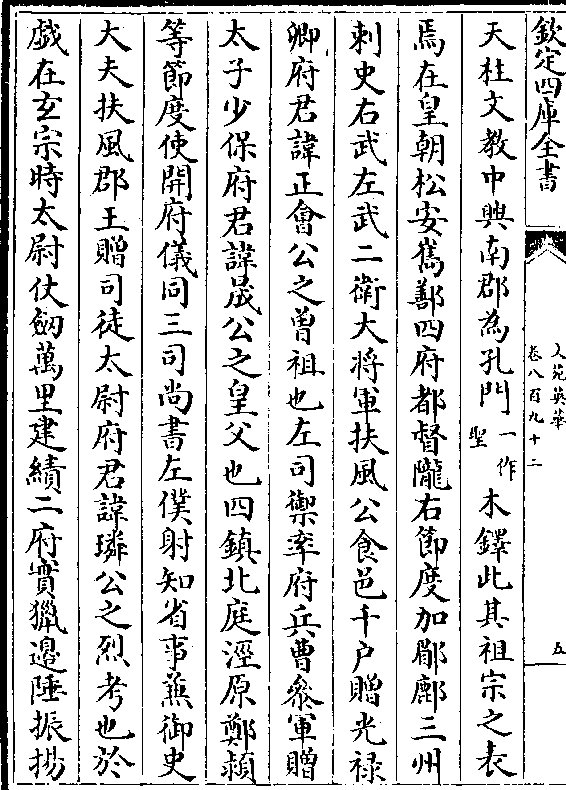 欽定四庫全書
文苑英華
卷八百九十二
五
天柱文教中興南郡為孔門一作聖木鐸此其祖宗之表
焉在皇朝松安嶲鄯四府都督隴右節度加鄏鄜三州
刺史右武左武二衛大將軍扶風公食邑千户贈光禄
卿府君諱正會公之曾祖也左司禦率府兵曹叅軍贈
太子少保府君諱晟公之皇父也四鎮北庭涇原鄭潁
等節度使開府儀同三司尚書左僕射知省事兼御史
大夫扶風郡王贈司徒太尉府君諱璘公之烈考也於
戯在玄宗時太尉仗劒萬里建績二府賓獵邉陲振揚